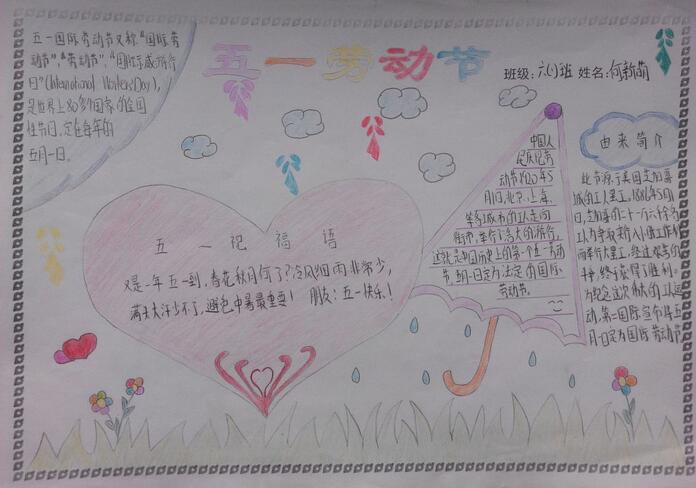 五一劳动节
班级:六(1)班 姓名:何新萌
五一国际劳动节又称“国际劳
动节”、“劳动节”、“国际示威游行
日”(International Workers' Day),
是世界上80多个国家的全国
性节日。定在每年的
五月一日。
五一祝福语
又是一年五一到,春花秋月何了?冷风细雨非常少,
满头大汗少不了,避免中暑最重要! 朋友:五一快乐!
中国人
民庆祝劳
动节1920年5
月1日,北京、上海、
等各城市的工人走向
街市,举行了浩大的游行,
这就是中国历史上的第一个五一劳动
节,5月1日定为法定的国际
劳动节。
由来简介
此节源于美国芝加哥
城的工人罢工,1886年5月1
日,芝加哥的二十一万六千余名
工人为争取
而举行大罢工,经过艰苦的
终于获得了胜利。
为纪念这次伟大的工人运
动,第二国际宣布将五
月一日定为国际劳动节